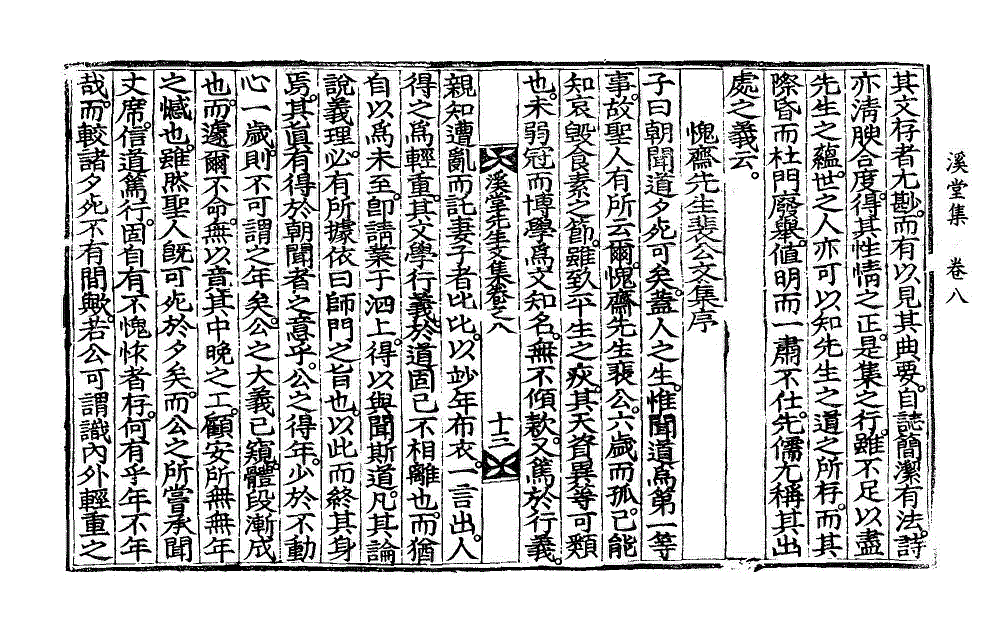 溪堂集　卷八
其文存者尤尠。而有以見其典要。自誌簡潔有法。詩
亦清腴合度。得其性情之正。是集之行。雖不足以盡
先生之蘊。世之人亦可以知先生之道之所存。而其
際昏而杜門廢擧。値明而一肅不仕。先儒尤稱其出
處之義云。
愧齋先生裴公文集序
子曰朝聞道夕死可矣。蓋人之生。惟聞道爲第一等
事。故聖人有所云爾。愧齋先生裴公。六歲而孤。已能
知哀毁食素之節。雖致平生之疾。其天資異等可類
也。未弱冠而博學爲文知名。無不傾款。又篤於行義。
溪堂先生文集卷之八　十三
親知遭亂而託妻子者比比。以妙年布衣。一言出。人
得之爲輕重。其文學行義。於道固已不相離也。而猶
自以爲未至。卽請業于泗上。得以與聞斯道。凡其論
說義理。必有所據依曰師門之旨也。以此而終其身
焉。其眞有得於朝聞者之意乎。公之得年。少於不動
心一歲。則不可謂之年矣。公之大義已窺。體段漸成
也。而遽爾不命。無以竟其中晩之工。顧安所無無年
之憾也。雖然聖人旣可死於夕矣。而公之所嘗承聞
丈席。信道篤行。固自有不愧恢者存。何有乎年不年
哉。而較諸夕死。不有間歟。若公可謂識內外輕重之